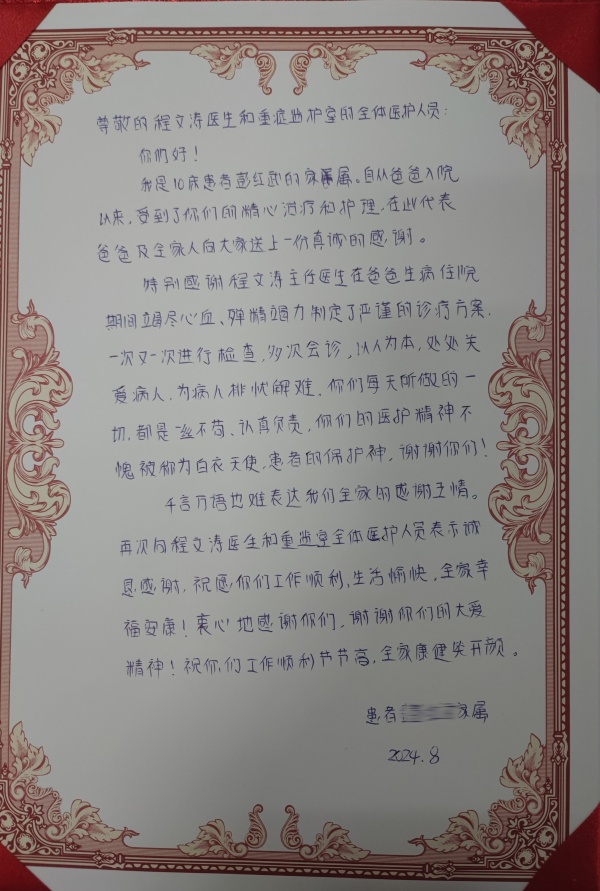 尊敬的程文涛医生和重症监护室的全体医护人员：
你们好！
我是10床患者彭红武的家属。自从爸爸入院
以来，受到了你们的精心治疗和护理，在此代表
爸爸及全家人向大家送上一份真诚的感谢。
特别感谢程文涛主任医生在爸爸生病住院
期间竭尽心血、殚精竭力制定了严谨的诊疗方案，
一次又一次进行检查，多次会诊，以人为本，处处关
爱病人，为病人排忧解难，你们每天所做的一
切，都是一丝不苟、认真负责，你们的医护精神不
愧被称为白衣天使，患者的保护神，谢谢你们！
千言万语也难表达我们全家的感谢之情。
再次向程文涛医生和重监室全体医护人员表示诚
恳感谢，祝愿你们工作顺利，生活愉快，全家幸
福安康！衷心地感谢你们，谢谢你们的大爱
精神！祝你们工作顺利节节高，全家康健笑开颜。
患者 家属
2024.8